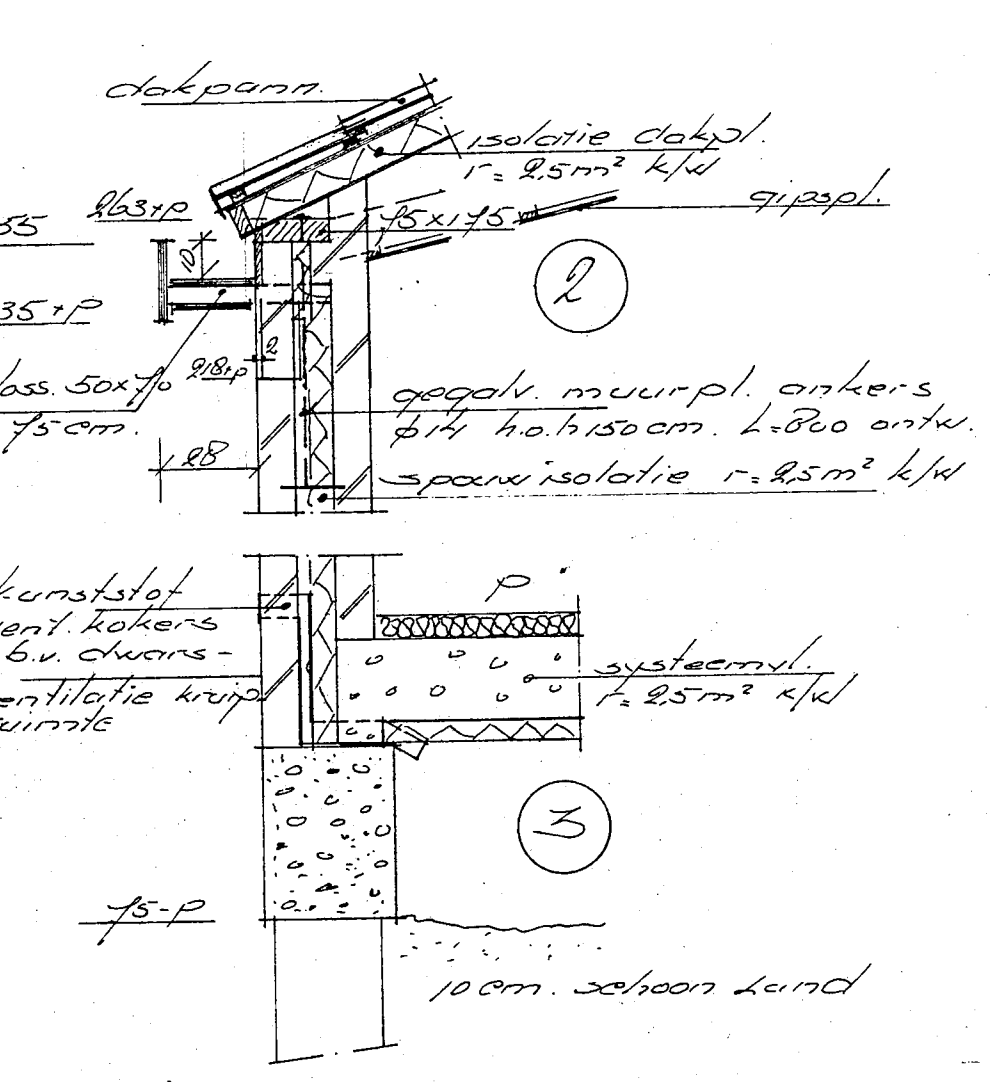 dakpann.
isolatie dakpl.
r = 2,5 m² k/w
263+p
75x175
gipspl.
55
10
2
35+P
2
218+p
50x70
75 cm.
gegalv. muurpl. ankers
ϕ14 h.o.h 150 cm. L=800 ontw.
28
spouwisolatie r = 2,5 m² k/w
kunststof
vent. kokers
b.v. dwars-
ventilatie kruip
ruimte
p
systeemvl.
r = 2,5 m² k/w
3
75-P
10 cm. schoon zand